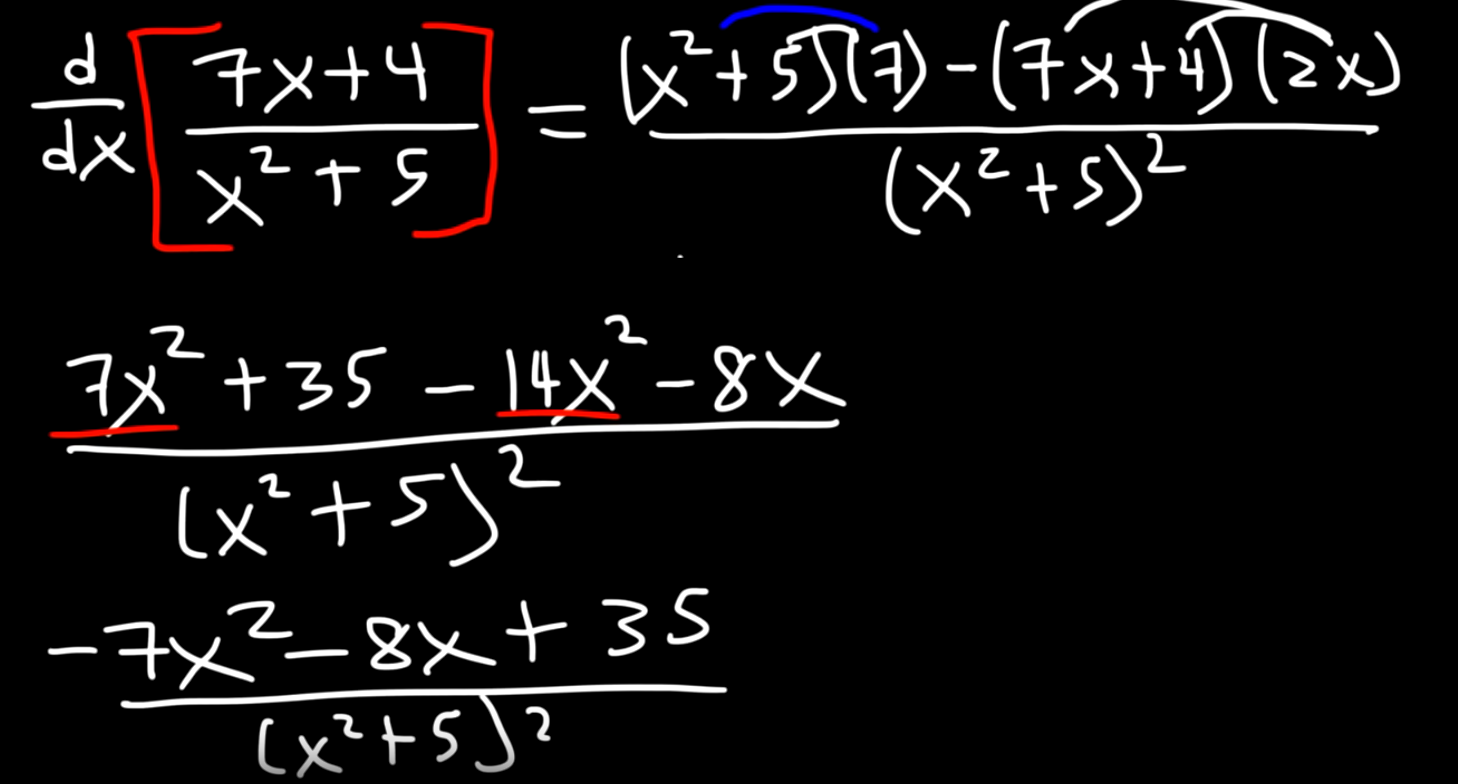 d/dx [(7x+4)/(x²+5)] = ((x²+5)(7)-(7x+4)(2x))/(x²+5)²
(7x²+35-14x²-8x)/(x²+5)²
(-7x²-8x+35)/(x²+5)²